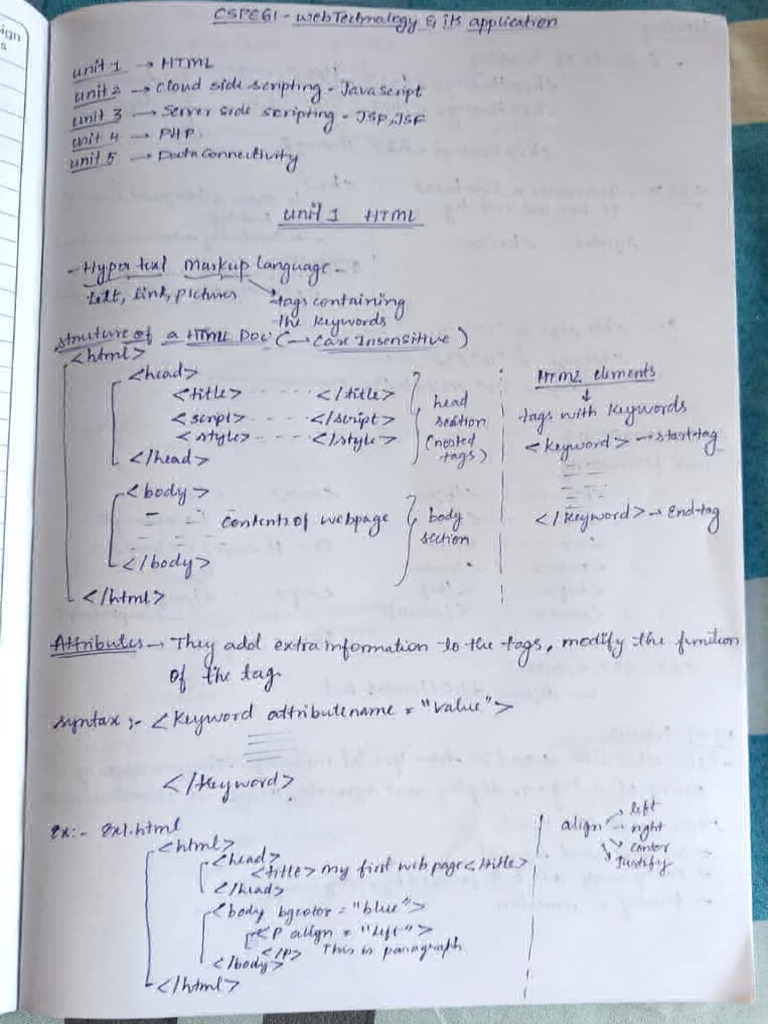 ign
s
CSPE61 - Web Technology & its application
unit 1 → HTML
unit 2 → Cloud side scripting - JavaScript
unit 3 → Server side scripting - JSP, JSF
unit 4 → PHP
unit 5 → Data Connectivity
unit 1 HTML
- Hyper text markup language -
text, link, pictures
tags containing
the keywords
struture of a HTML Doc (→ Case Insensitive)
<html>
<head>
<title> - - - - </title>
<script> - - - - </script>
<style> - - - - </style>
</head>
head
section
(nested
tags)
<body>
contents of webpage
</body>
body
section
</html>
HTML elements
↓
tags with keywords
<keyword> → start tag
</keyword> → End-tag
Attributes → They add extra information to the tags, modify the function
of the tag
syntax :- <keyword attributename = "value">
</keyword>
Ex:- Ex1.html
<html>
<head>
<title> my first web page <title>
</head>
<body bgcolor = "blue">
<P align = "left">
</p> This is paragraph
</body>
</html>
align → left
→ right
→ center
→ Justify